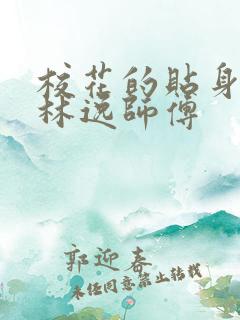 校花的貼身
林逸師傅
郭迎春
未经同意禁止转载